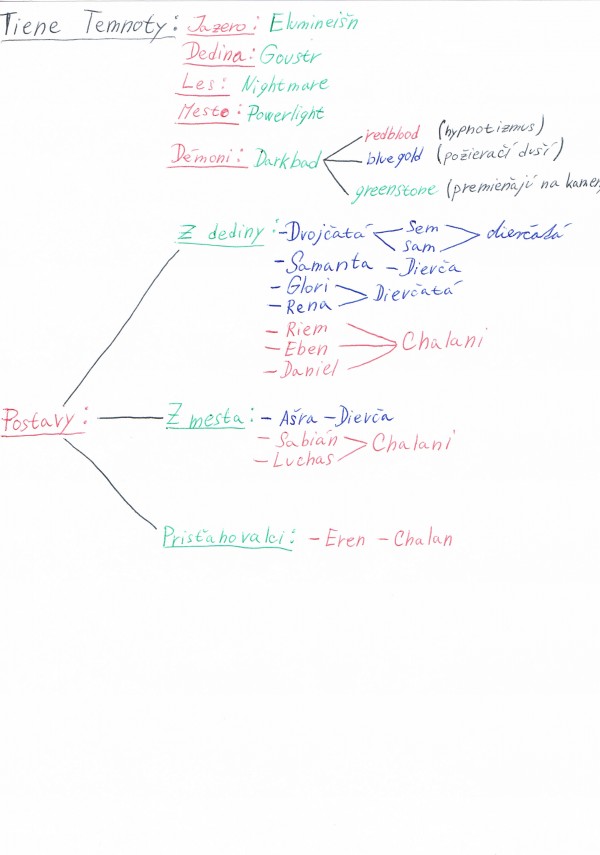 Tiene Temnoty: Jazero: Elumineišn
Dedina: Goustr
Les: Nightmare
Mesto: Powerlight
Démoni: Darkbad
redblood (hypnotizmus)
bluegold (požierači duší)
greenstone (premieňajú na kameň
Z dediny: - Dvojčatá Sem
Sam dierčatá
- Samanta - Dievča
- Glori
- Rena Dievčatá
- Riem
- Eben Chalani
- Daniel
Postavy: Z mesta: - Ašra - Dievča
- Sabián Chalani
- Luchas
Prisťahovalci: - Eren - Chalan